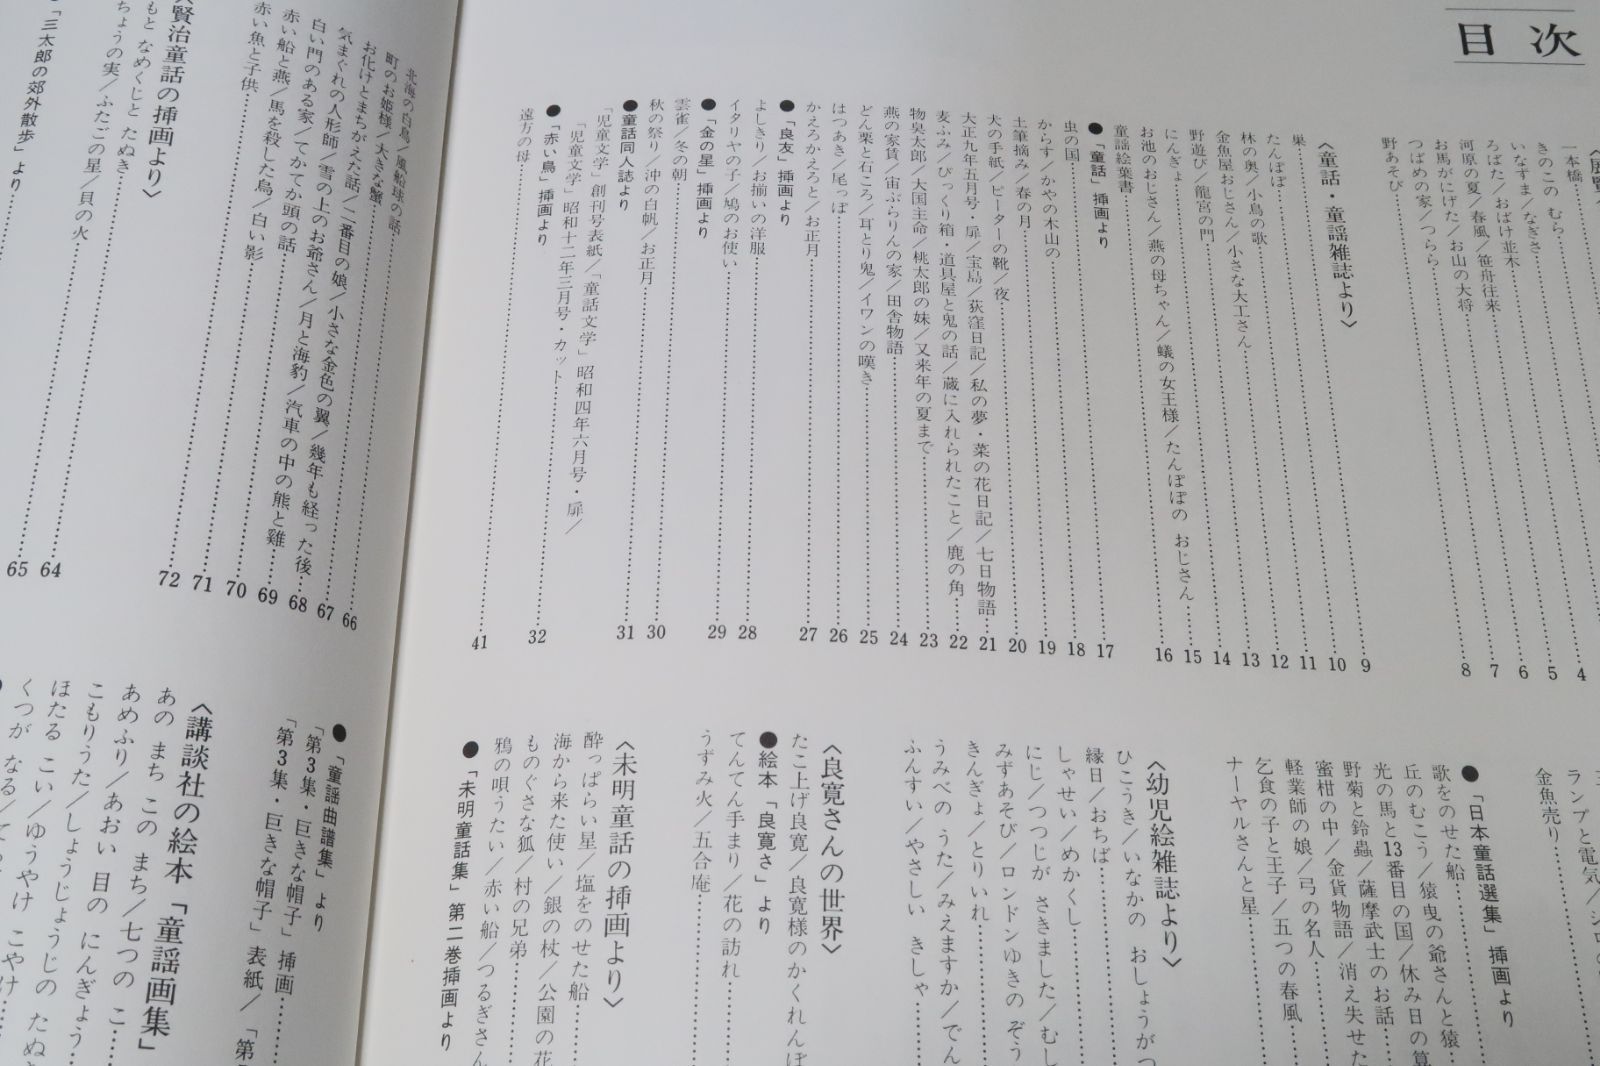 目次
一本橋
きのこの むら 4
いなずま/なぎさ 5
ろばた/おばけ並木 6
河原の夏/春風/笹舟往来 7
お馬がにげた/お山の大将 8
つばめの家/つらら
野あそび
〈童話・童謡雑誌より〉
巣 9
たんぽぽ 10
林の奥/小鳥の歌 11
金魚屋おじさん/小さな大工さん 12
野遊び/龍宮の門 13
にんぎょ 14
お池のおじさん/燕の母ちゃん/蟻の女王様/たんぽぽの おじさん 15
童謡絵葉書 16
●「童話」挿画より
虫の国 17
からす/かやの木山の 18
土筆摘み/春の月 19
犬の手紙/ピーターの靴/夜 20
大正九年五月号・扉/宝島/荻窪日記/私の夢・菜の花日記/七日物語 21
麦ふみ/びっくり箱・道具屋と鬼の話/蔵に入れられたこと/鹿の角 22
物臭太郎/大国主命/桃太郎の妹/又来年の夏まで 23
燕の家賃/宙ぶらりんの家/田舎物語 24
どん栗と石ころ/耳とり鬼/イワンの嘆き 25
はつあき/尾っぽ 26
かえろかえろと/お正月 27
●「良友」挿画より
よしきり/お揃いの洋服 28
イタリヤの子/鳩のお使い 29
●「金の星」挿画より
雲雀/冬の朝 30
秋の祭り/沖の白帆/お正月 31
●童話同人誌より
「児童文学」創刊号表紙/「童話文学」昭和四年六月号・扉/
「児童文学」昭和十二年三月号・カット 32
●「赤い鳥」挿画より
遠方の母 41
ランプと電気/
金魚売り
●「日本童話選集」挿画より
歌をのせた船
丘のむこう/猿曳の爺さんと猿
光の馬と13番目の国/休み日の算
野菊と鈴蟲/薩摩武士のお話
蜜柑の中/金貨物語/消え失せた
軽業師の娘/弓の名人
乞食の子と王子/五つの春風
ナーヤルさんと星
〈幼児絵雑誌より〉
ひこうき/いなかの おしょうがつ
縁日/おちば
しゃせい/めかくし
にじ/つつじが さきました/むし
みずあそび/ロンドンゆきの ぞう
きんぎょ/とりいれ
うみべの うた/みえますか/でん
ふんすい/やさしい きしゃ
〈良寛さんの世界〉
たこ上げ良寛/良寛様のかくれんぼ
●絵本「良寛さ」より
てんてん手まり/花の訪れ
うずみ火/五合庵
〈未明童話の挿画より〉
酔っぱらい星/塩をのせた船
海から来た使い/銀の杖/公園の花
ものぐさな狐/村の兄弟
鴉の唄うたい/赤い船/つるぎさん
●「未明童話集」第二巻挿画より
北海の白鳥/風船球の話 66
町のお姫様/大きな蟹 67
お化けとまちがえた話/二番目の娘/小さな金色の翼/幾年も経った後 68
気まぐれの人形師/雪の上のお爺さん/月と海豹/汽車の中の熊と雞 69
白い門のある家/てかてか頭の話 70
赤い船と燕/馬を殺した烏/白い影 71
赤い魚と子供 72
賢治童話の挿画より〉
もと なめくじと たぬき 64
ちょうの実/ふたごの星/貝の火 65
●「三太郎の郊外散歩」より
●「童謡曲譜集」より
「第3集・巨きな帽子」挿画
「第3集・巨きな帽子」表紙/「第
〈講談社の絵本「童謡画集」
あの まち この まち/七つの こ
あめふり/あおい 目の にんぎょう
こもりうた/しょうじょうじの たぬ
ほたる こい/ゆうやけ こやけ
くつが なる/